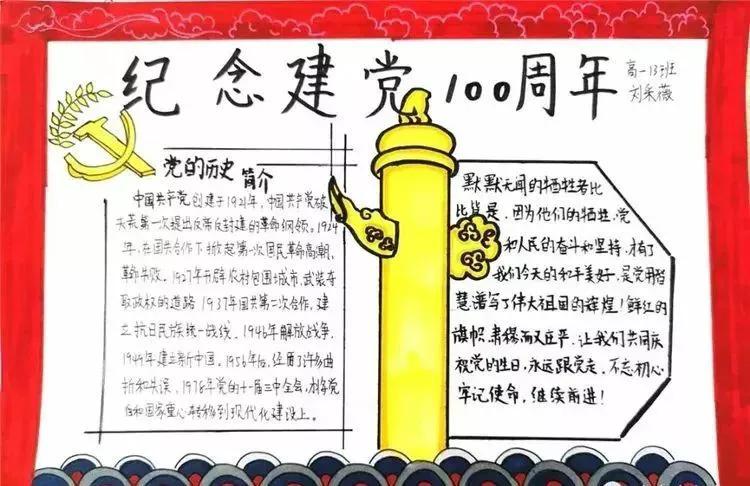 纪念建党100周年
高一13班
刘采薇
党的历史简介
中国共产党创建于1921年,中国共产党破
天荒第一次提出反帝反封建的革命纲领。1924
年,在国共合作下掀起第一次国民革命高潮,
革命失败。1927年开辟农村包围城市,武装夺
取政权的道路 1937年国共第二次合作,建
立抗日民族统一战线。1946年解放战争,
1949年建立新中国。1956年后,经历了许多曲
折和失误,1978年党的十一届三中全会,才将党
和国家重心转移到现代化建设上。
默默无闻的牺牲者比
比皆是,因为他们的牺牲,党
和人民的奋斗和坚持,才有了
我们今天的和平美好,是党用智
慧谱写了伟大祖国的辉煌!鲜红的
旗帜,肃穆而又庄严,让我们共同庆
祝党的生日,永远跟党走,不忘初心
牢记使命,继续前进!